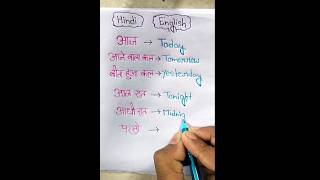 Hindi English
आज → Today
आने वाला कल → Tomorrow
बीता हुआ कल → Yesterday
आज रात → Tonight
आधी रात → Midnig
परसों →